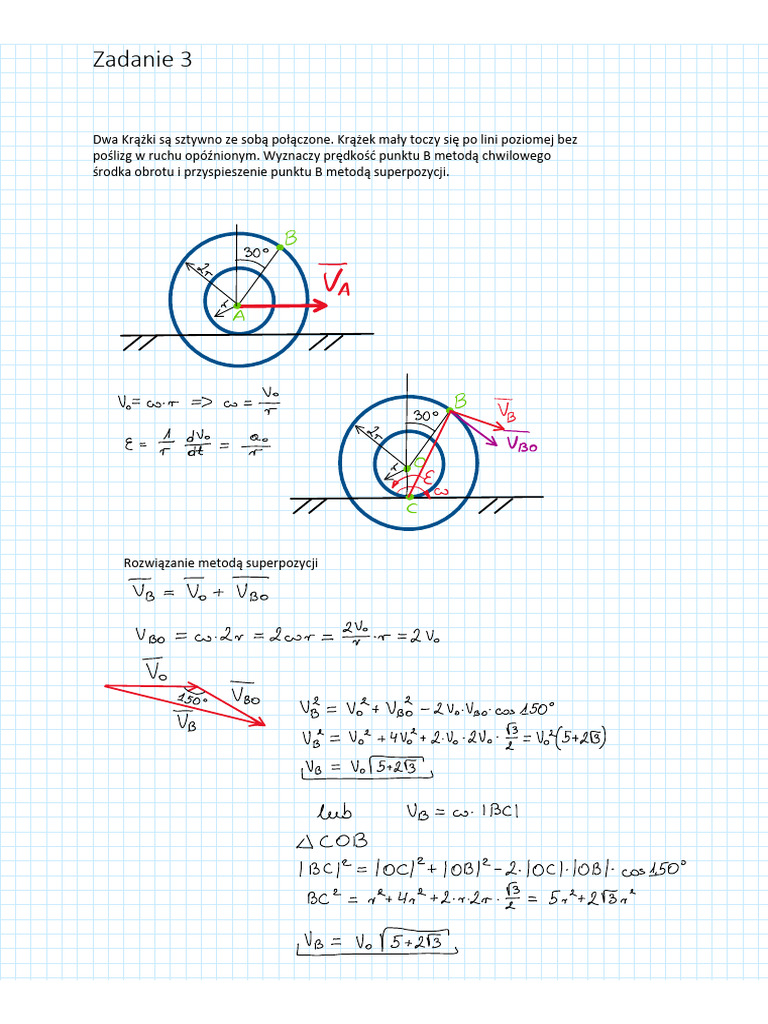 Zadanie 3
Dwa Krążki są sztywno ze sobą połączone. Krążek mały toczy się po lini poziomej bez
poślizg w ruchu opóźnionym. Wyznaczy prędkość punktu B metodą chwilowego
środka obrotu i przyspieszenie punktu B metodą superpozycji.
B
30°
2r
V̅_A
r
A
V₀ = ω·r => ω = V₀/r
ε = 1/r dV₀/dt = a₀/r
B
V̅_B
30°
V̅_BO
2r
r
O
ε
ω
C
Rozwiązanie metodą superpozycji
V̅_B = V̅_O + V̅_BO
V_BO = ω·2r = 2ωr = 2V₀/r·r = 2V₀
V̅_O
V̅_BO
150°
V̅_B
V_B² = V₀² + V_BO² - 2V₀·V_BO·cos 150°
V_B² = V₀² + 4V₀² + 2·V₀·2V₀·√3/2 = V₀²(5+2√3)
V_B = V₀√(5+2√3)
lub V_B = ω·|BC|
△COB
|BC|² = |OC|² + |OB|² - 2·|OC|·|OB|·cos 150°
BC² = r² + 4r² + 2·r·2r·√3/2 = 5r² + 2√3r²
V_B = V₀√(5+2√3)